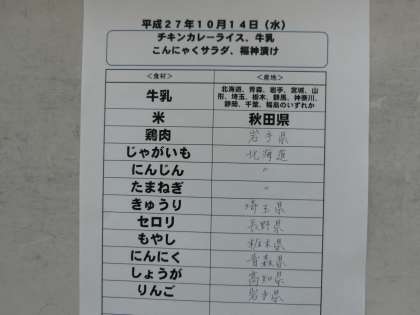 平成27年10月14日（水）
チキンカレーライス、牛乳
こんにゃくサラダ、福神漬け
＜食材＞ ＜産地＞
牛乳 北海道、青森、岩手、宮城、山
形、埼玉、栃木、群馬、神奈川、
静岡、千葉、福島のいずれか
米 秋田県
鶏肉 岩手県
じゃがいも 北海道
にんじん 〃
たまねぎ 〃
きゅうり 埼玉県
セロリ 長野県
もやし 栃木県
にんにく 青森県
しょうが 高知県
りんご 岩手県